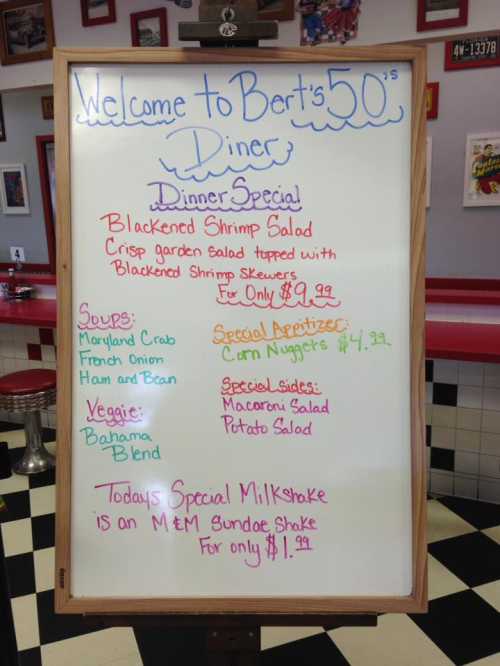 Welcome to Bert's 50's
Diner
Dinner Special
Blackened Shrimp Salad
Crisp garden salad topped with
Blackened Shrimp Skewers
For Only $9.99
Soups:
Maryland Crab
French Onion
Ham and Bean
Veggie:
Bahama
Blend
Special Appitizer:
Corn Nuggets $4.99
Special sides:
Macaroni Salad
Potato Salad
Todays Special Milkshake
is an M&M Sundae Shake
For only $1.99
4W-13378
4